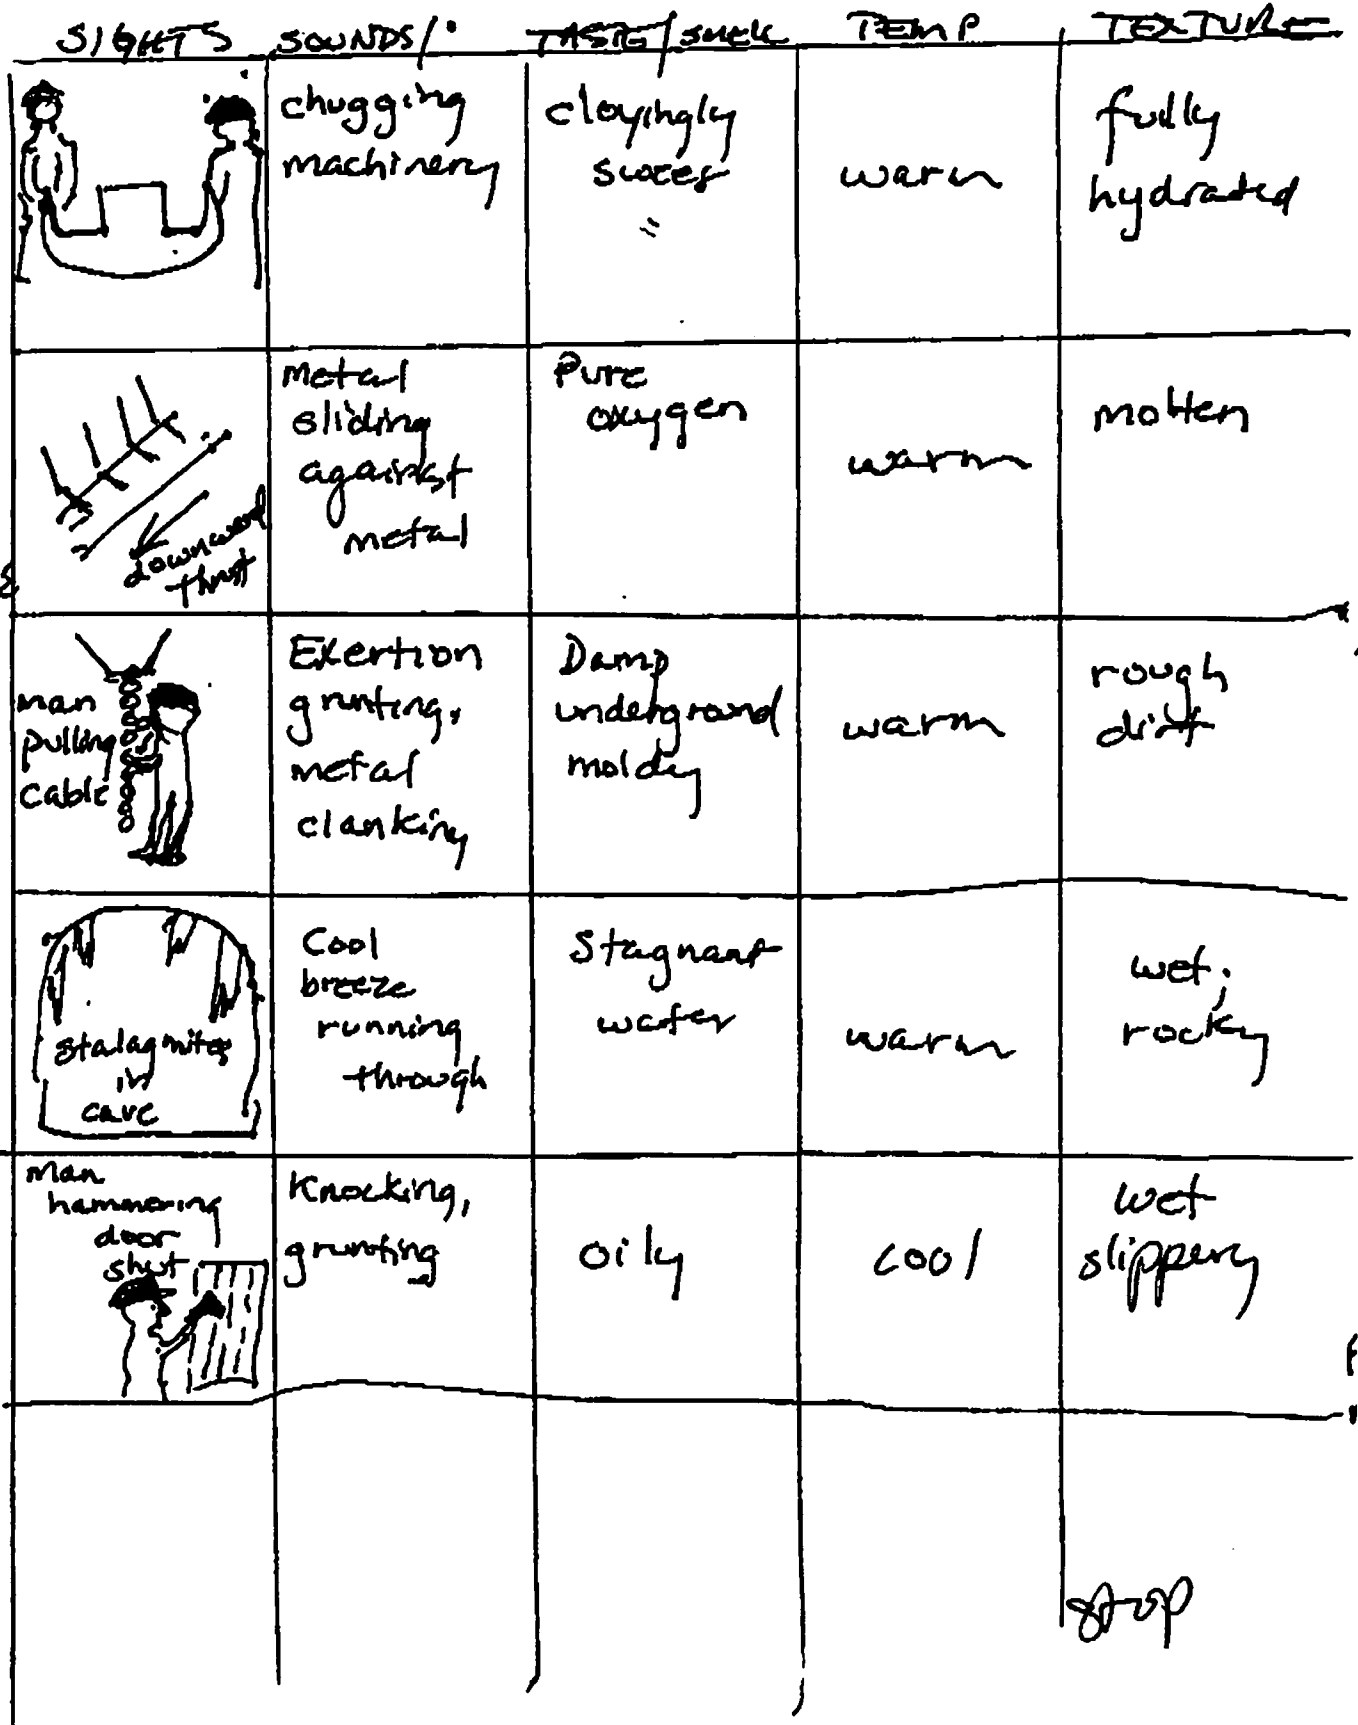 SIGHTS SOUNDS/ TASTE/SMELL TEMP TEXTURE
chugging
machinery
cloyingly
sweet
warm
fully
hydrated
downward
thrust
metal
sliding
against
metal
Pure
oxygen
warm
molten
man
pulling
cable
Exertion
grunting,
metal
clanking
Damp
underground
moldy
warm
rough
dirt
stalagmites
in
cave
Cool
breeze
running
through
Stagnant
water
warm
wet,
rocky
Man
hammering
door
shut
Knocking,
grunting
oily
cool
wet
slippery
stop